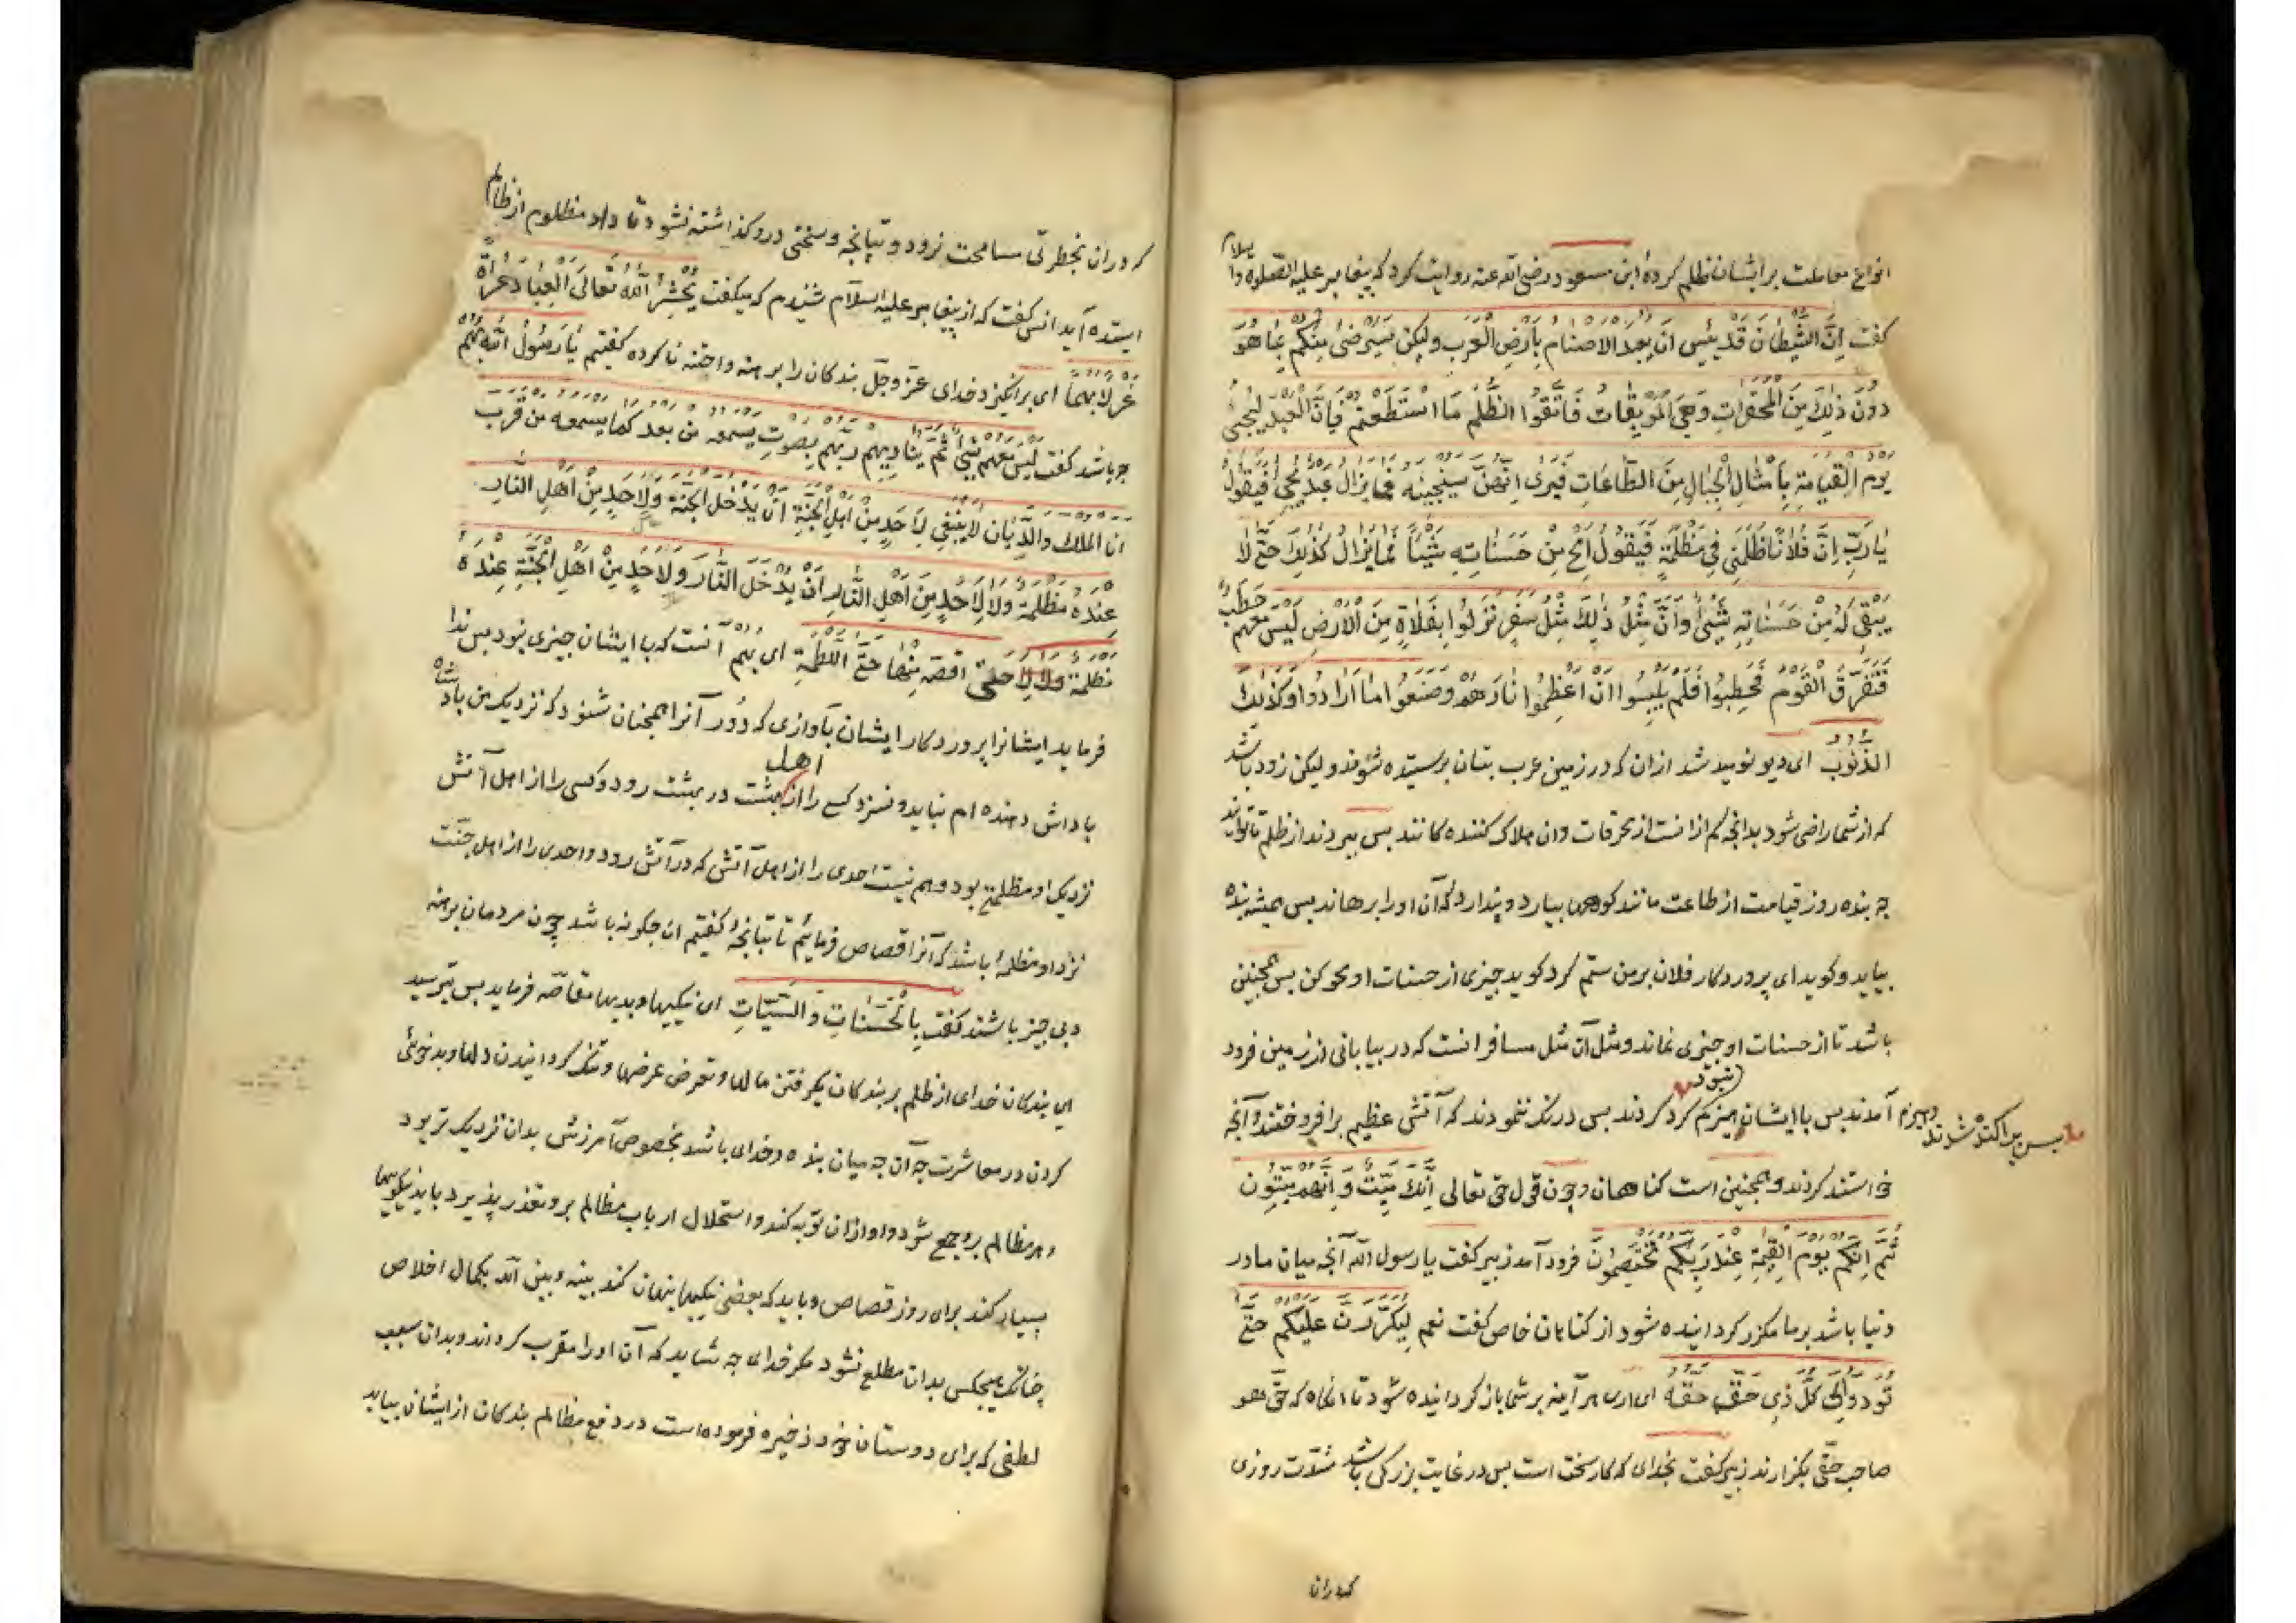 انواع معاملت بر ایشان ظلم کردهٔ ابن مسعود رضی الله عنه روایت کرد که پیغامبر علیه الصلوة والسلام
کفت اِنَّ الشَّیطانَ قَد یَئِسَ اَن یعبد الاصنام بِاَرضِ العَرَب ولیکن سَیَرضی مِنکُم بِما هُوَ
دُونَ ذلِكَ مِنَ المُحَقَّراتِ وَهِیَ المُوبِقاتُ فَاتَّقُوا الظُّلمَ مَا استَطَعتُم فَاِنَّ العَبدَ لَیَجِیءُ
یَومَ القِیمَةِ بِاَمثالِ الجِبالِ مِنَ الطّاعاتِ فَیَری اَنَّهُنَّ سَیُنجِینَه فَما یَزالُ عَبدٌ یَجِیءُ فَیَقُولُ
یا رَبِّ اِنَّ فُلانًا ظَلَمَنِی فِی مَظلِمَةٍ فَیَقُولُ اُمحُ مِن حَسَناتِه شَیئًا فَما یَزالُ کَذلِكَ حَتّی لا
یَبقی لَهُ مِن حَسَناتِه شَیءٌ وَاِنَّ مِثلُ ذلِكَ مَثَلُ سَفرٍ نَزَلُوا بِفَلاةٍ مِنَ الاَرضِ لَیسَ مَعَهُم حَطَبٌ
فَتَفَرَّقَ القَومُ فَحَطِبُوا فَلَم یَلبَثُوا اَن اَعظَمُوا نارَهُم وَصَنَعُوا ما اَرادُوا وَکَذلِكَ
الذُّنُوبُ ای دیو نومید شد ازان که در زمین عرب بتان پرستیده شوند ولیکن زود باشد
که از شما راضی شود بدانچه کم ازانست از محقرات وان هلاک کننده کانند بس بپرهیزند از ظلم تا توانند
چه بنده روز قیامت از طاعت مانند کوهها بیارد و پندارد که آن او را برهاند بس همیشه بنده
بیاید و کوید ای پروردکار فلان بر من ستم کرد کوید چیزی از حسنات او محو کن بس همچنین
باشد تا از حسنات او چیزی نماند ومثل آن مثل مسافرانست که در بیابانی از زمین فرود
آمدند بس با ایشان هیزم نبود بس پراکنده شدند وهیزم کرد کردند بس درنک ننمودند که آتشی عظیم برافروختند وآنچه
خواستند کردند وهمچنین است کناهان وچون قول حق تعالی اِنَّكَ مَیِّتٌ وَ اِنَّهُم مَیِّتُون
ثُمَّ اِنَّکُم یَومَ القِیمَةِ عِندَ رَبِّکُم تَختَصِمُونَ فرود آمد زبیر کفت یا رسول الله آنچه میان ما در
دنیا باشد بر ما مکرر کردانیده شود از کناهان خاص کفت نعم لَیُکَرَّرَنَّ عَلَیکُم حَتّی
تُؤَدُّوا اِلی کُلِّ ذِی حَقٍّ حَقَّهُ ای اری هر آینه بر شما باز کردانیده شود تا انکاه که حق هر
صاحب حقی بکزارند زبیر کفت بخدای که کار سخت است بس در غایت بزرکی باشد شدّت روزی
که دران
که دران بخطرتی مسامحت نرود و تپانچه و سخنی درو کذاشته نشود تا داد مظلوم از ظالم
استده آید انس کفت که از پیغامبر علیه السلام شنیدم که میکفت یَحشُرُ اللّٰهُ تَعالَی العِبادَ عُراةً
غُرلًا بُهمًا ای برانکیزد خدای عزّ وجلّ بندکان را برهنه و اختنه ناکرده کفتیم یا رَسُولَ اللّٰهِ بُهم
چه باشد کفت لَیسَ مَعَهُم شَیءٌ ثُمَّ یُنادِیهِم رَبُّهُم بِصَوتٍ یسمعه من بعد کما یسمعه من قرب
انا الملك والدّیّان لا یَنبَغِی لِاَحَدٍ مِن اَهلِ الجَنَّةِ اَن یَدخُلَ الجَنَّةَ وَلِاَحَدٍ مِن اَهلِ النّارِ
عِندَهُ مَظلِمَةٌ وَلا لِاَحَدٍ مِن اَهلِ النّارِ اَن یَدخُلَ النّارَ وَلِاَحَدٍ مِن اَهلِ الجَنَّةِ عِندَهُ
مَظلِمَةٌ حَتّی اَقُصَّهُ مِنها حَتَّی اللَّطمَةِ ای بهم آنست که با ایشان چیزی نبود بس ندا
فرماید ایشانرا پروردکار ایشان بآوازی که دور آنرا همچنان شنود که نزدیک من پادشاه
پاداش دهنده ام نباید و نسزد کسی را از اهل بهشت در بهشت رود وکسی را از اهل آتش
نزدیک او مظلمتی بود وهم نیست احدی را از اهل آتش که در آتش رود واحدی را از اهل جنّت
نزد او مظلمهٔ باشد که آنرا قصاص فرمائیم تا تپانچهٔ کفتیم ان چکونه باشد چون مردمان برهنه
وبی چیز باشند کفت بِالحَسَناتِ وَالسَّیِّئاتِ ای نیکیها وبدیها مقاصّه فرماید بس بترسید
ای بندکان خدای از ظلم بر بندکان بکرفتن مالها و تعرض عرضها و تنک کردانیدن دلها وبدخوئی
کردن در معاشرت چه آن چه میان بنده وخدای باشد بخصوص آمرزش بدان نزدیک تر بود
وهر مظالم برو جمع شود واو ازان توبه کند واستحلال ارباب مظالم برو متعذر پذیرد باید نیکویها
بسیار کند برای روز قصاص وباید که بعضی نیکیها پنهان کند بینه وبین الله بکمال اخلاص
چنانک هیچکس بدان مطلع نشود مکر خدای چه شاید که آن او را مقرب کرداند وبدان سبب
لطفی که برای دوستان خود ذخیره فرموده است در دفع مظالم بندکان از ایشان بیاید